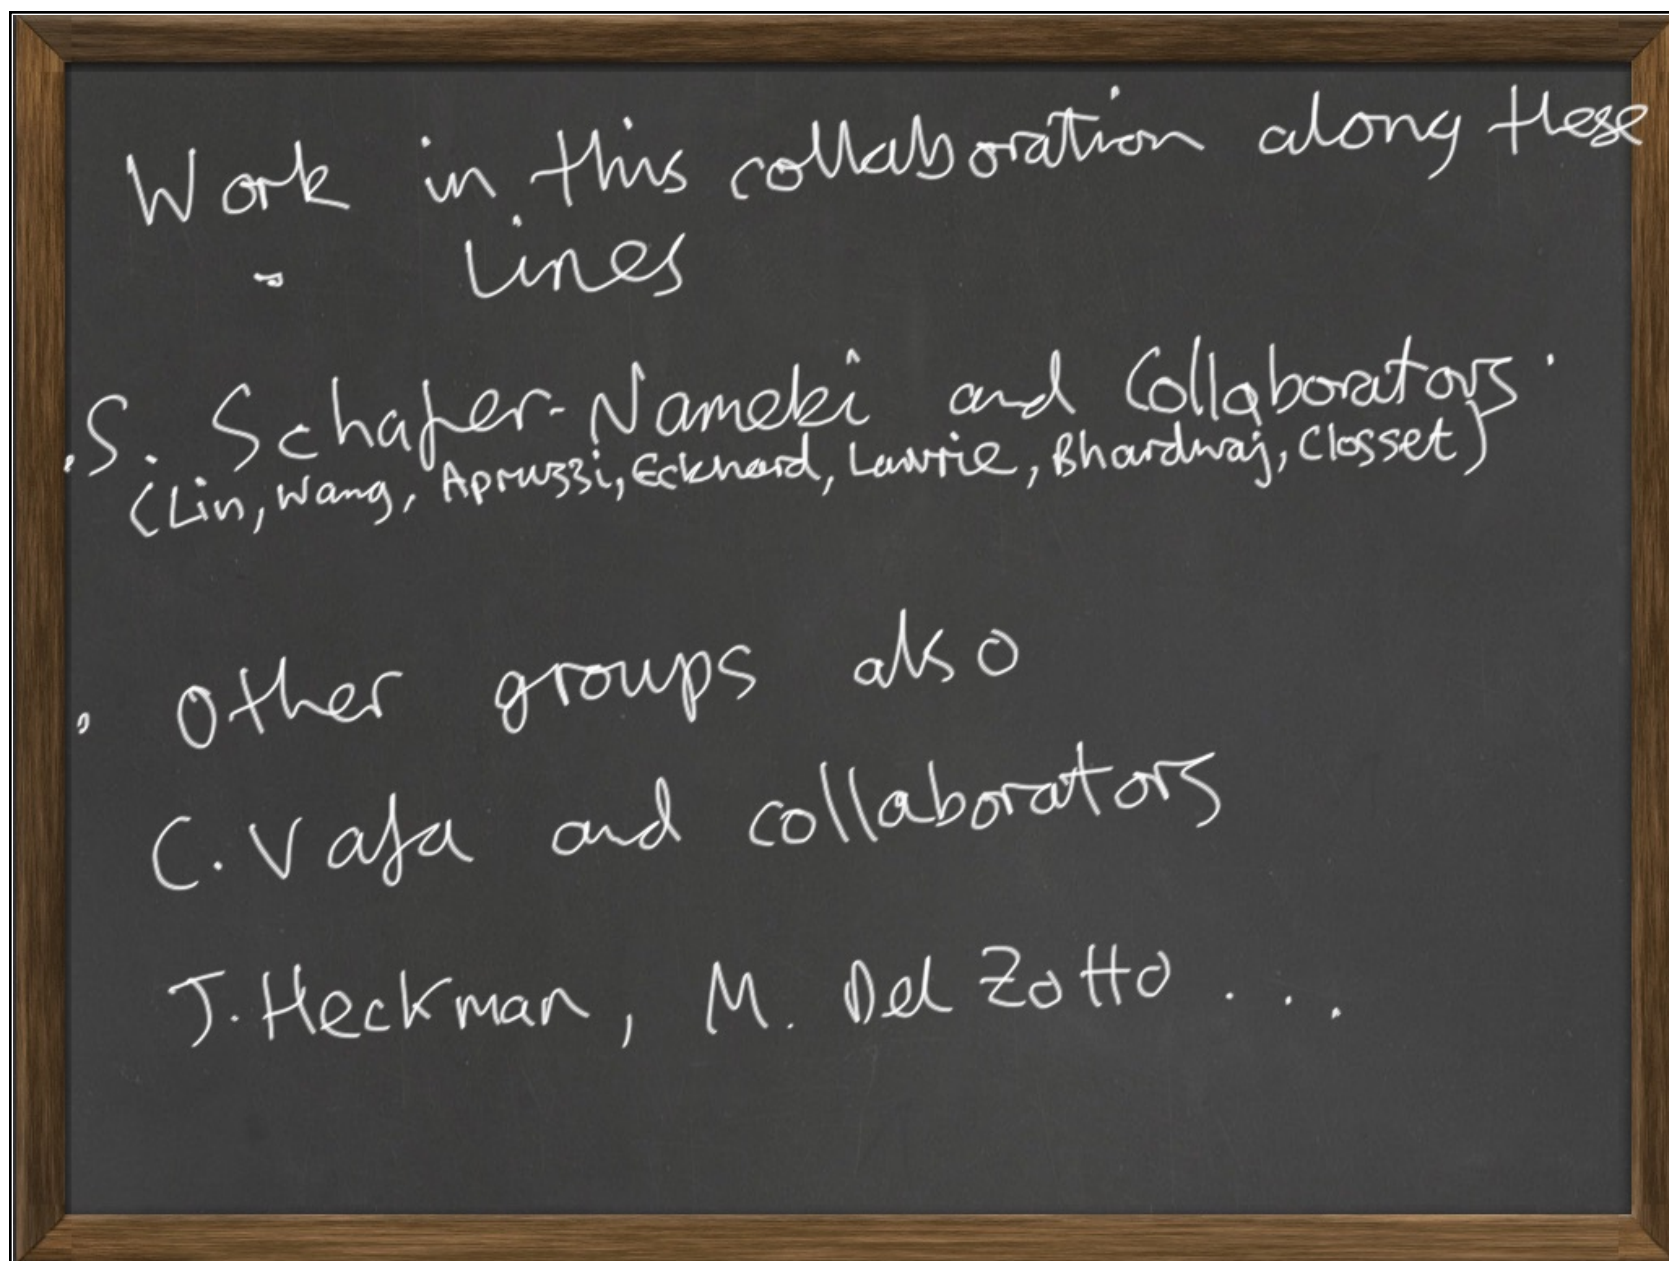 Work in this collaboration along these
Lines
. S. Schafer-Nameki and Collaborators.
(Lin, Wang, Apruzzi, Eckhard, Lawrie, Bhardwaj, Closset)
. Other groups also
C. Vafa and collaborators
J. Heckman, M. Del Zotto ...